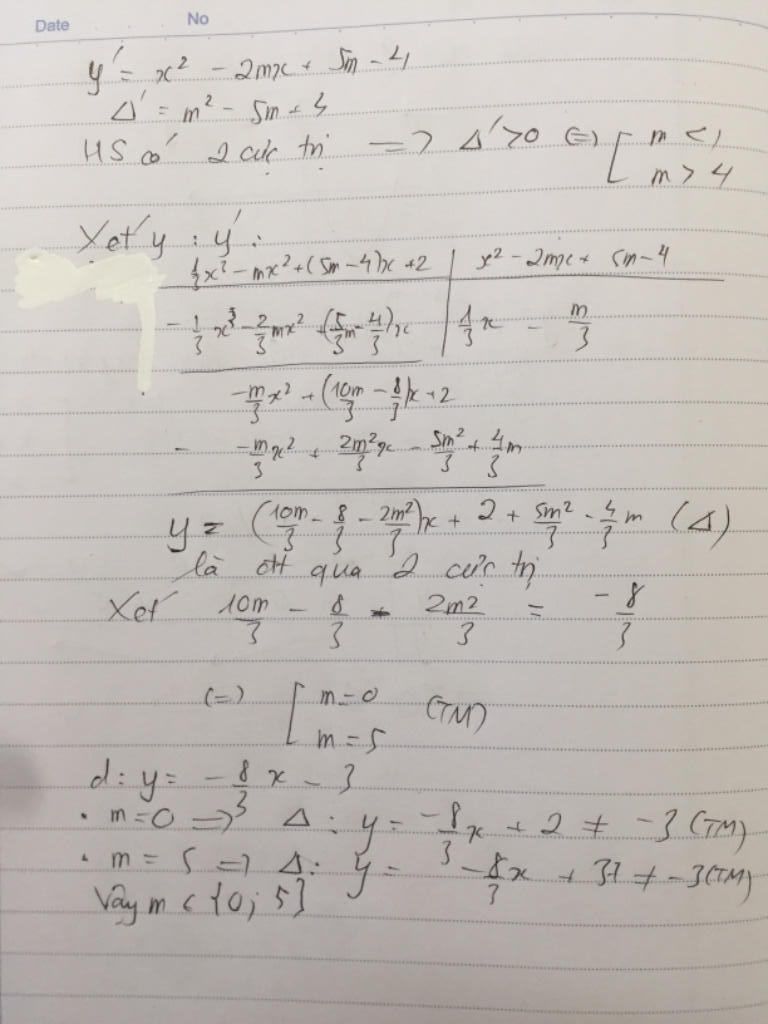 Date No
y' = x² - 2mx + 5m - 4
Δ' = m² - 5m + 4
HS có 2 cực trị => Δ' > 0 (=) [ m < 1
m > 4
Xét y : y' :
1/3x³ - mx² + (5m - 4)x + 2 | x² - 2mx + 5m - 4
- 1/3 x³ - 2/3 mx² + (5/3 m - 4/3)x | 1/3 x - m/3
-m/3 x² + (10m/3 - 8/3)x + 2
- -m/3 x² + 2m²/3 x - 5m²/3 + 4/3 m
y = (10m/3 - 8/3 - 2m²/3)x + 2 + 5m²/3 - 4/3 m (Δ)
là đt qua 2 cực trị
Xét 10m/3 - 8/3 - 2m²/3 = -8/3
(=) [ m = 0 (TM)
m = 5
d : y = -8/3 x - 3
• m = 0 => Δ : y = -8/3 x + 2 ≠ -3 (TM)
• m = 5 => Δ : y = -8/3 x + 37 ≠ -3 (TM)
Vậy m ∈ {0; 5}